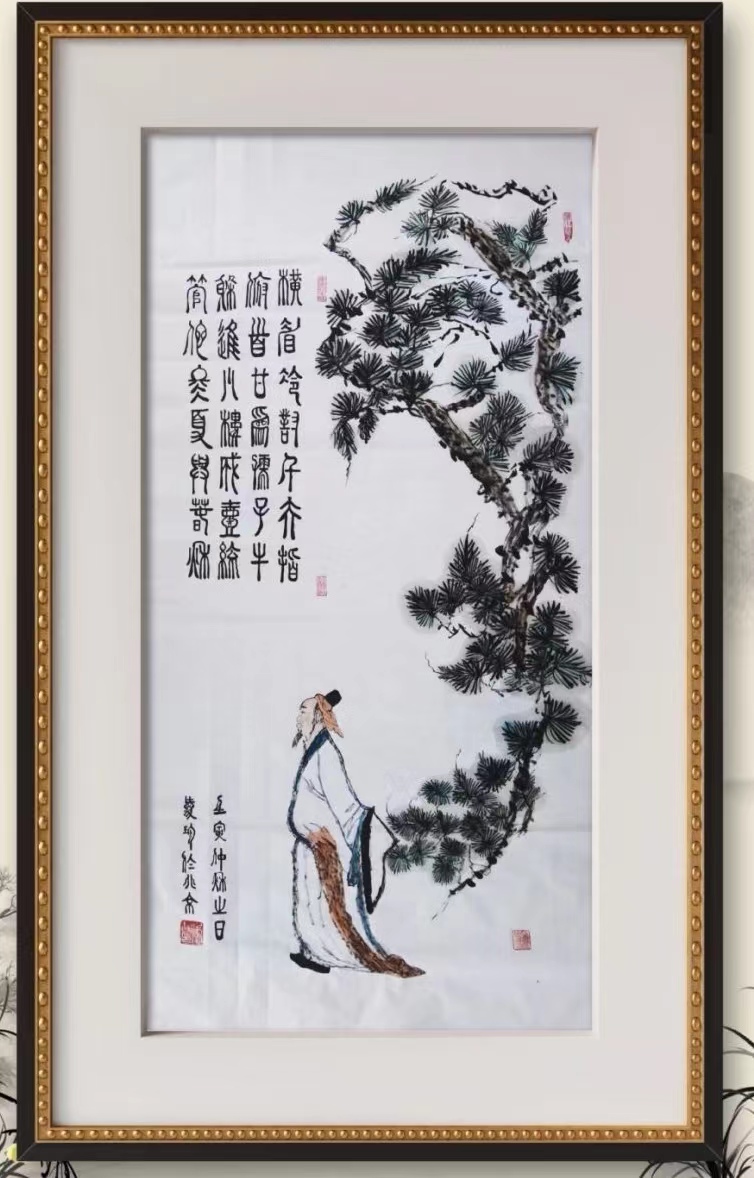 橫眉冷對千夫指
俯首甘爲孺子牛
躲進小樓成壹統
管他冬夏與春秋
壬寅仲秋之日
於北京